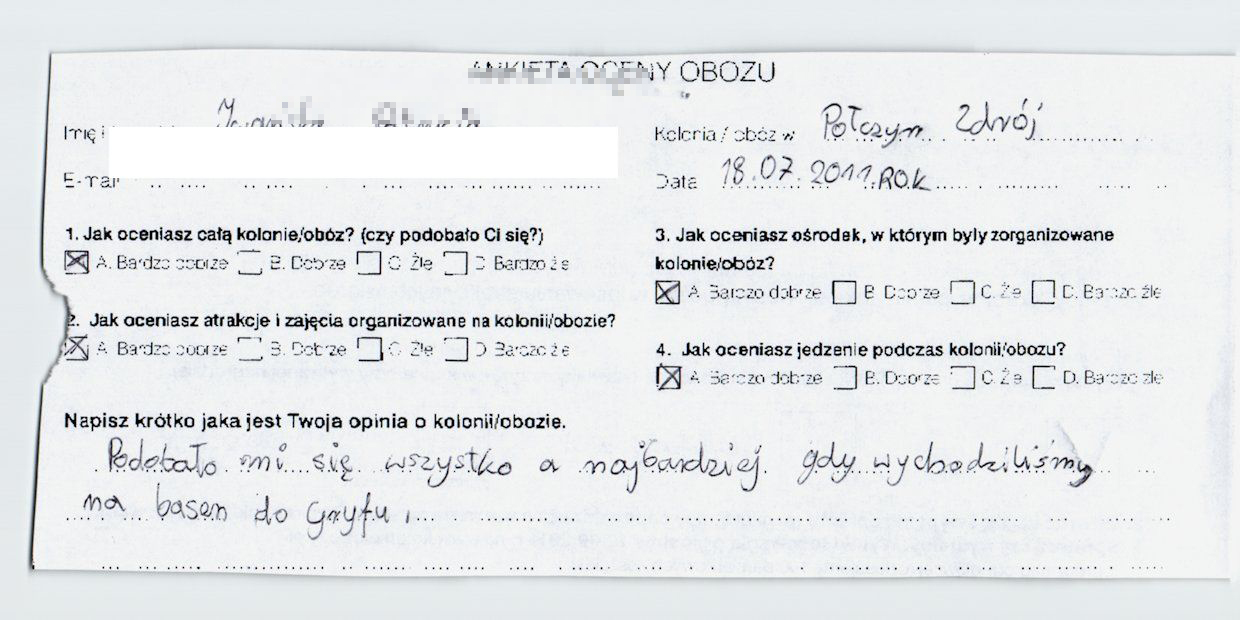 ANKIETA OCENY OBOZU
Imię i
E-mail
Kolonia / obóz w Połczyn Zdrój
Data 18.07.2011.ROK
1. Jak oceniasz całą kolonie/obóz? (czy podobało Ci się?)
A. Bardzo dobrze B. Dobrze C. Źle D. Bardzo źle
2. Jak oceniasz atrakcje i zajęcia organizowane na kolonii/obozie?
A. Bardzo dobrze B. Dobrze C. Źle D. Bardzo źle
3. Jak oceniasz ośrodek, w którym byly zorganizowane
kolonie/obóz?
A. Bardzo dobrze B. Dobrze C. Źle D. Bardzo źle
4. Jak oceniasz jedzenie podczas kolonii/obozu?
A. Bardzo dobrze B. Dobrze C. Źle D. Bardzo źle
Napisz krótko jaka jest Twoja opinia o kolonii/obozie.
Podobało mi się wszystko a najbardziej gdy wychodziliśmy
na basen do Gryfu.